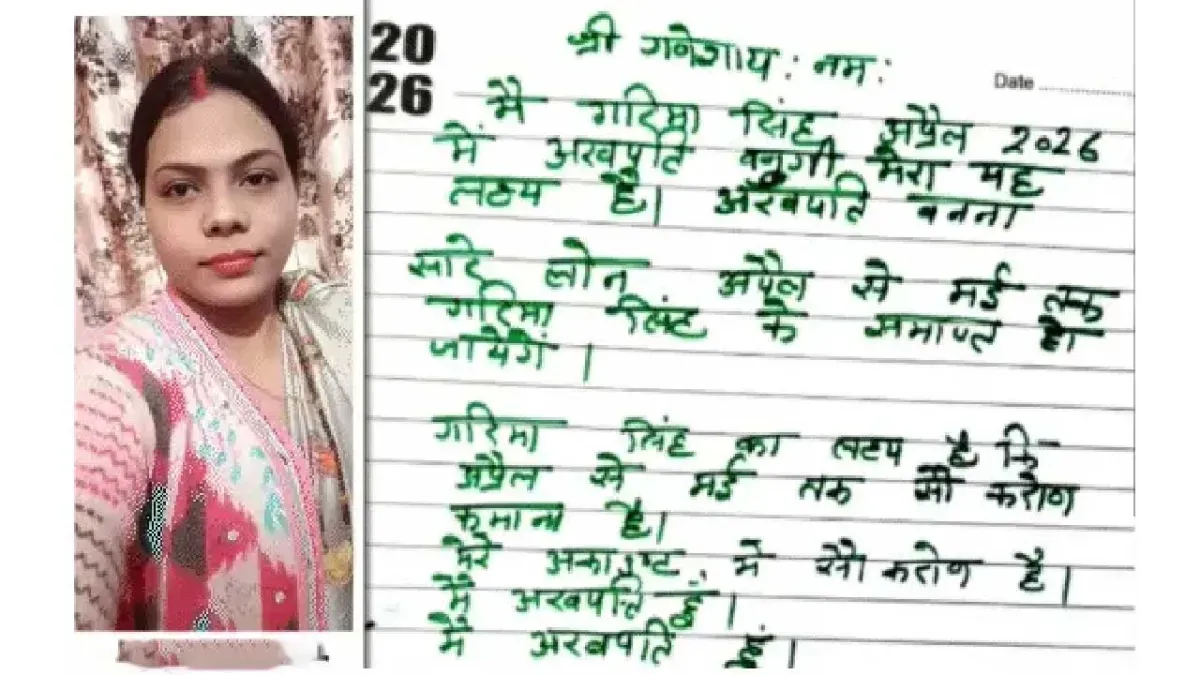 20
26
Date
श्री गणेशाय : नम :
मै गरिमा सिंह अप्रैल 2026
में अरबपति बनुगी मेरा यह
लक्ष्य है। अरबपति बनना
सारे लोन अप्रैल से मई तक
गरिमा सिंह के समाप्त हो
जायेगें ।
गरिमा सिंह का लक्ष्य है कि
अप्रैल से मई तक सौ करोण
कमाना है।
मेरे अकाउण्ट में सौ करोण है।
मैं अरबपति हूं।
मैं अरबपति हूं।